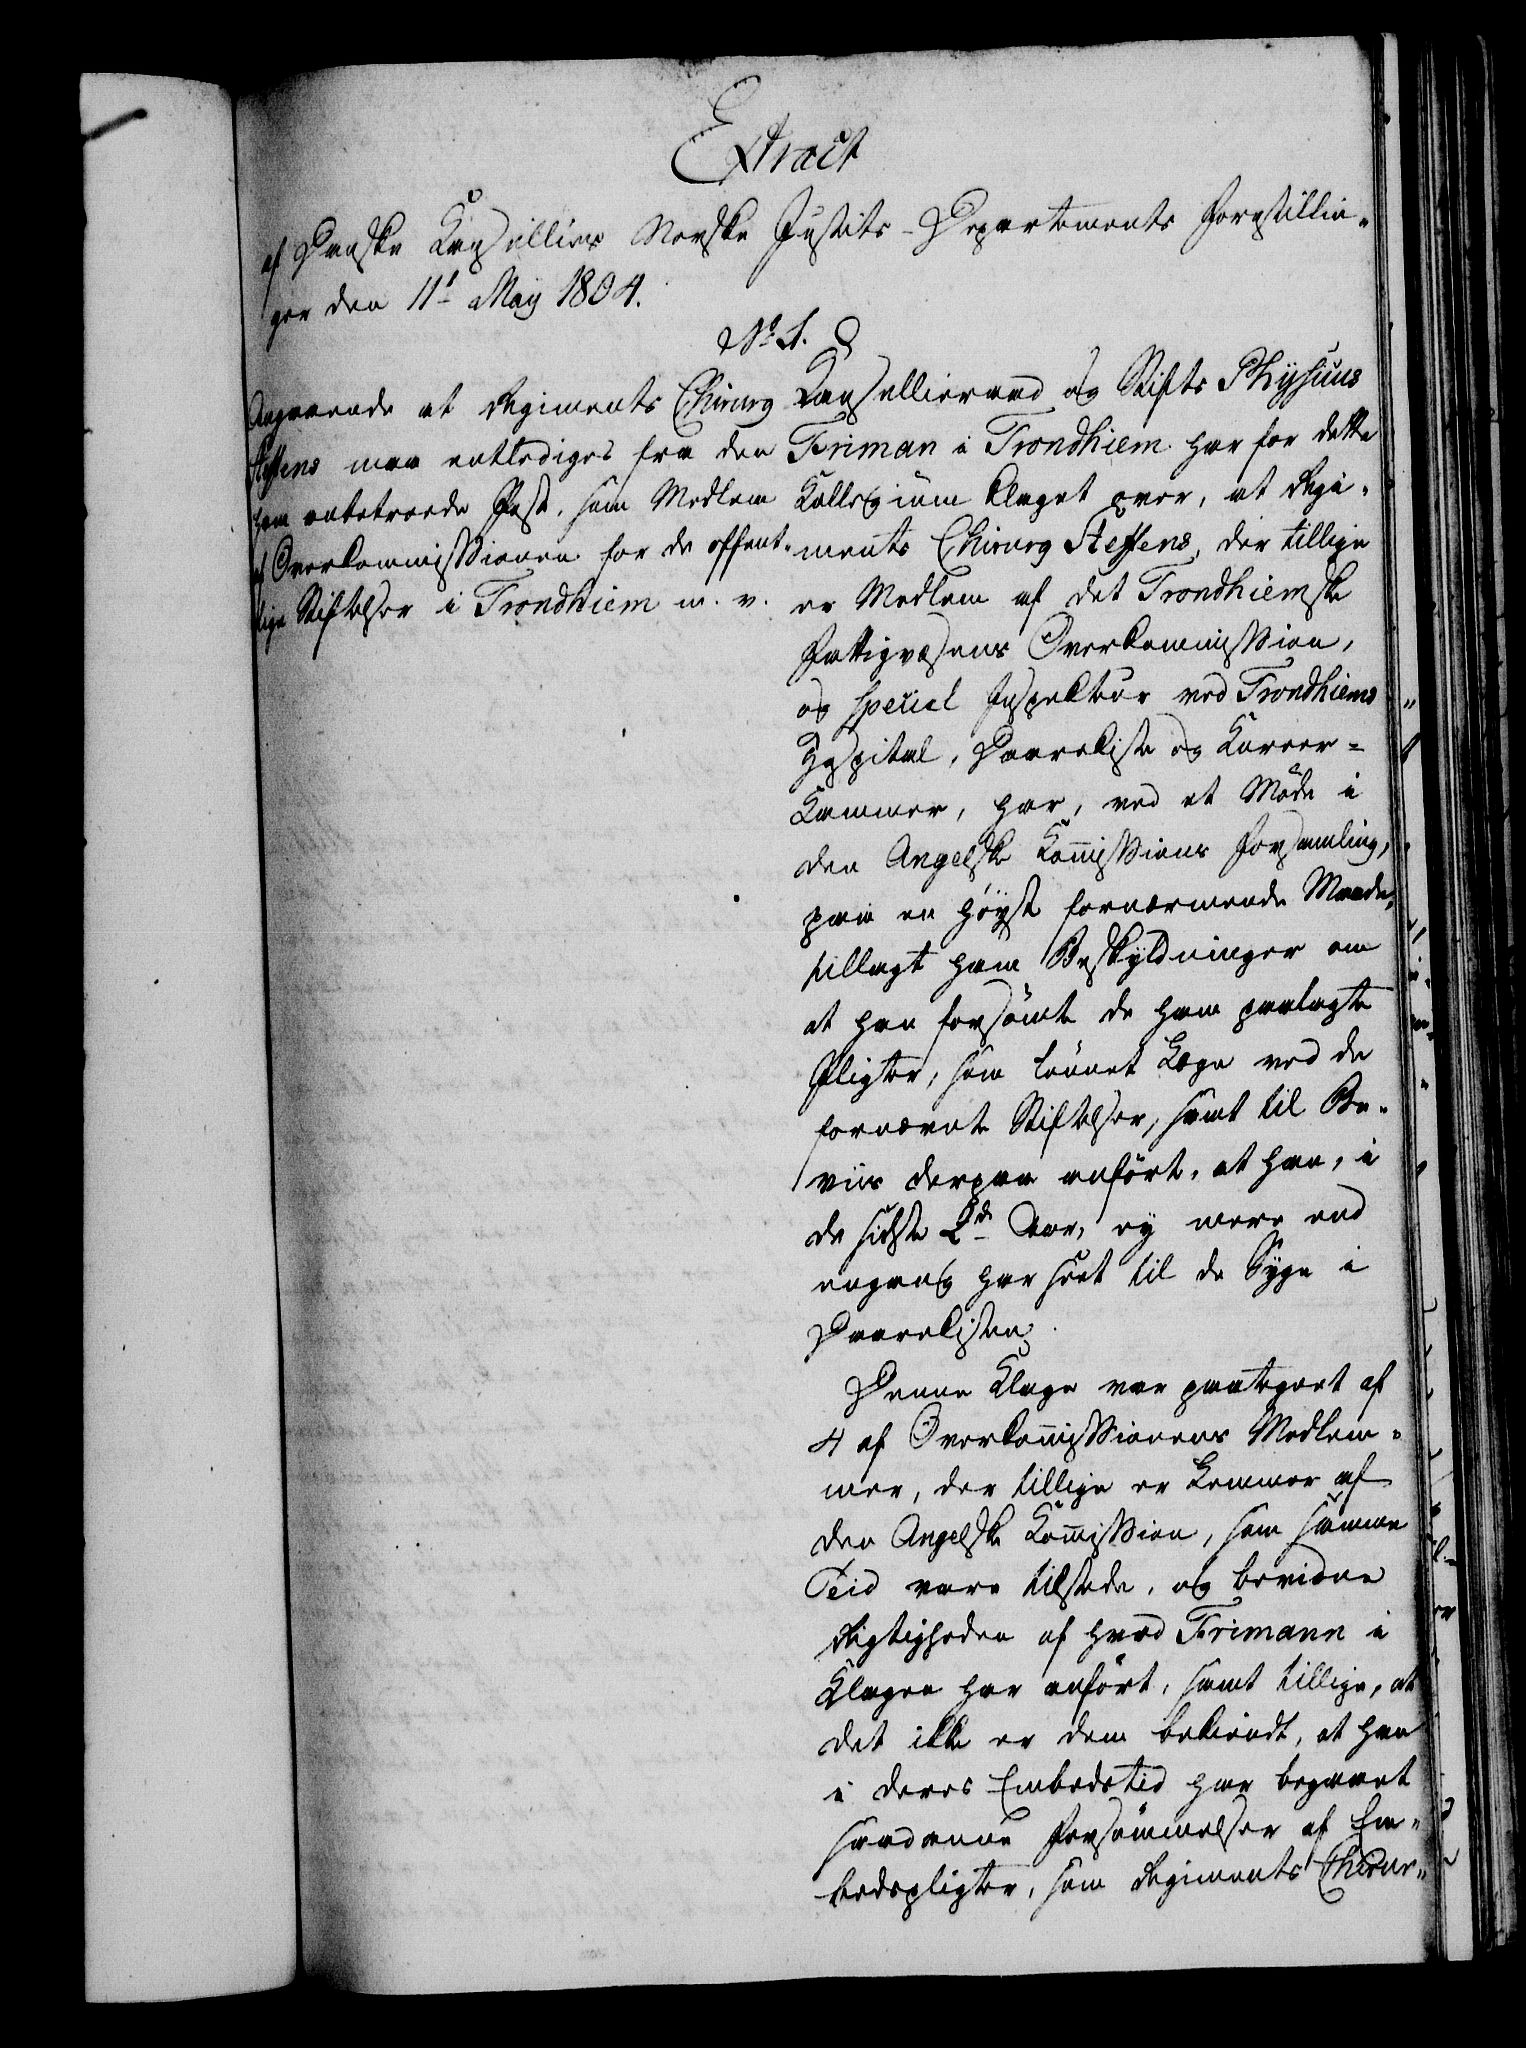 Extract
af Danske Kanselliers Norske Justits-Departements Forestillin-
ger den 11t May 1804.
No. 1.
Angaaende at Regiments Chirurg
Steffens maa entlediges fra den
ham anbetroede Post, som Medlem
af Overkommissionen for de offent-
lige Stiftelser i Trondhiem m. v.
Kansellieraad og Stifts Physicus
Friman i Trondhiem har for dette
Kollegium klaget over, at Regi-
ments Chirurg Steffens, der tillige
er Medlem af det Trondhiemske
Fattigvæsens Overkommission,
og special Inspekteur ved Trondhiems
Hospital, Daarekiste og Kureer-
Kammer, har, ved et Möde i
den Angelske Kommissions Forsamling,
paa en höyst fornærmende Maade,
tillagt ham Beskyldninger om
at han forsömte de ham paalagte
Pligter, som lönnet Læge ved de
fornævnte Stiftelser, samt til Be-
viis derpaa anfört, at han, i
de sidste 2de Aar, ey mere end
engang har seet til de Syge i
Daarekisten.
Denne Klage var paategnet af
4 af Overkommissionens Medlem-
mer, der tillige er Lemmer af
den Angelske Kommission, som samme
Tiid vare tilstede, og bevidne
Rigtigheden af hvad Frimann i
Klagen har anfört, samt tillige, at
det ikke er dem bekiendt, at han
i deres Embedstid har begaaet
saadanne Forsömmelser af Em-
bedspligter, som Regiments Chirur-